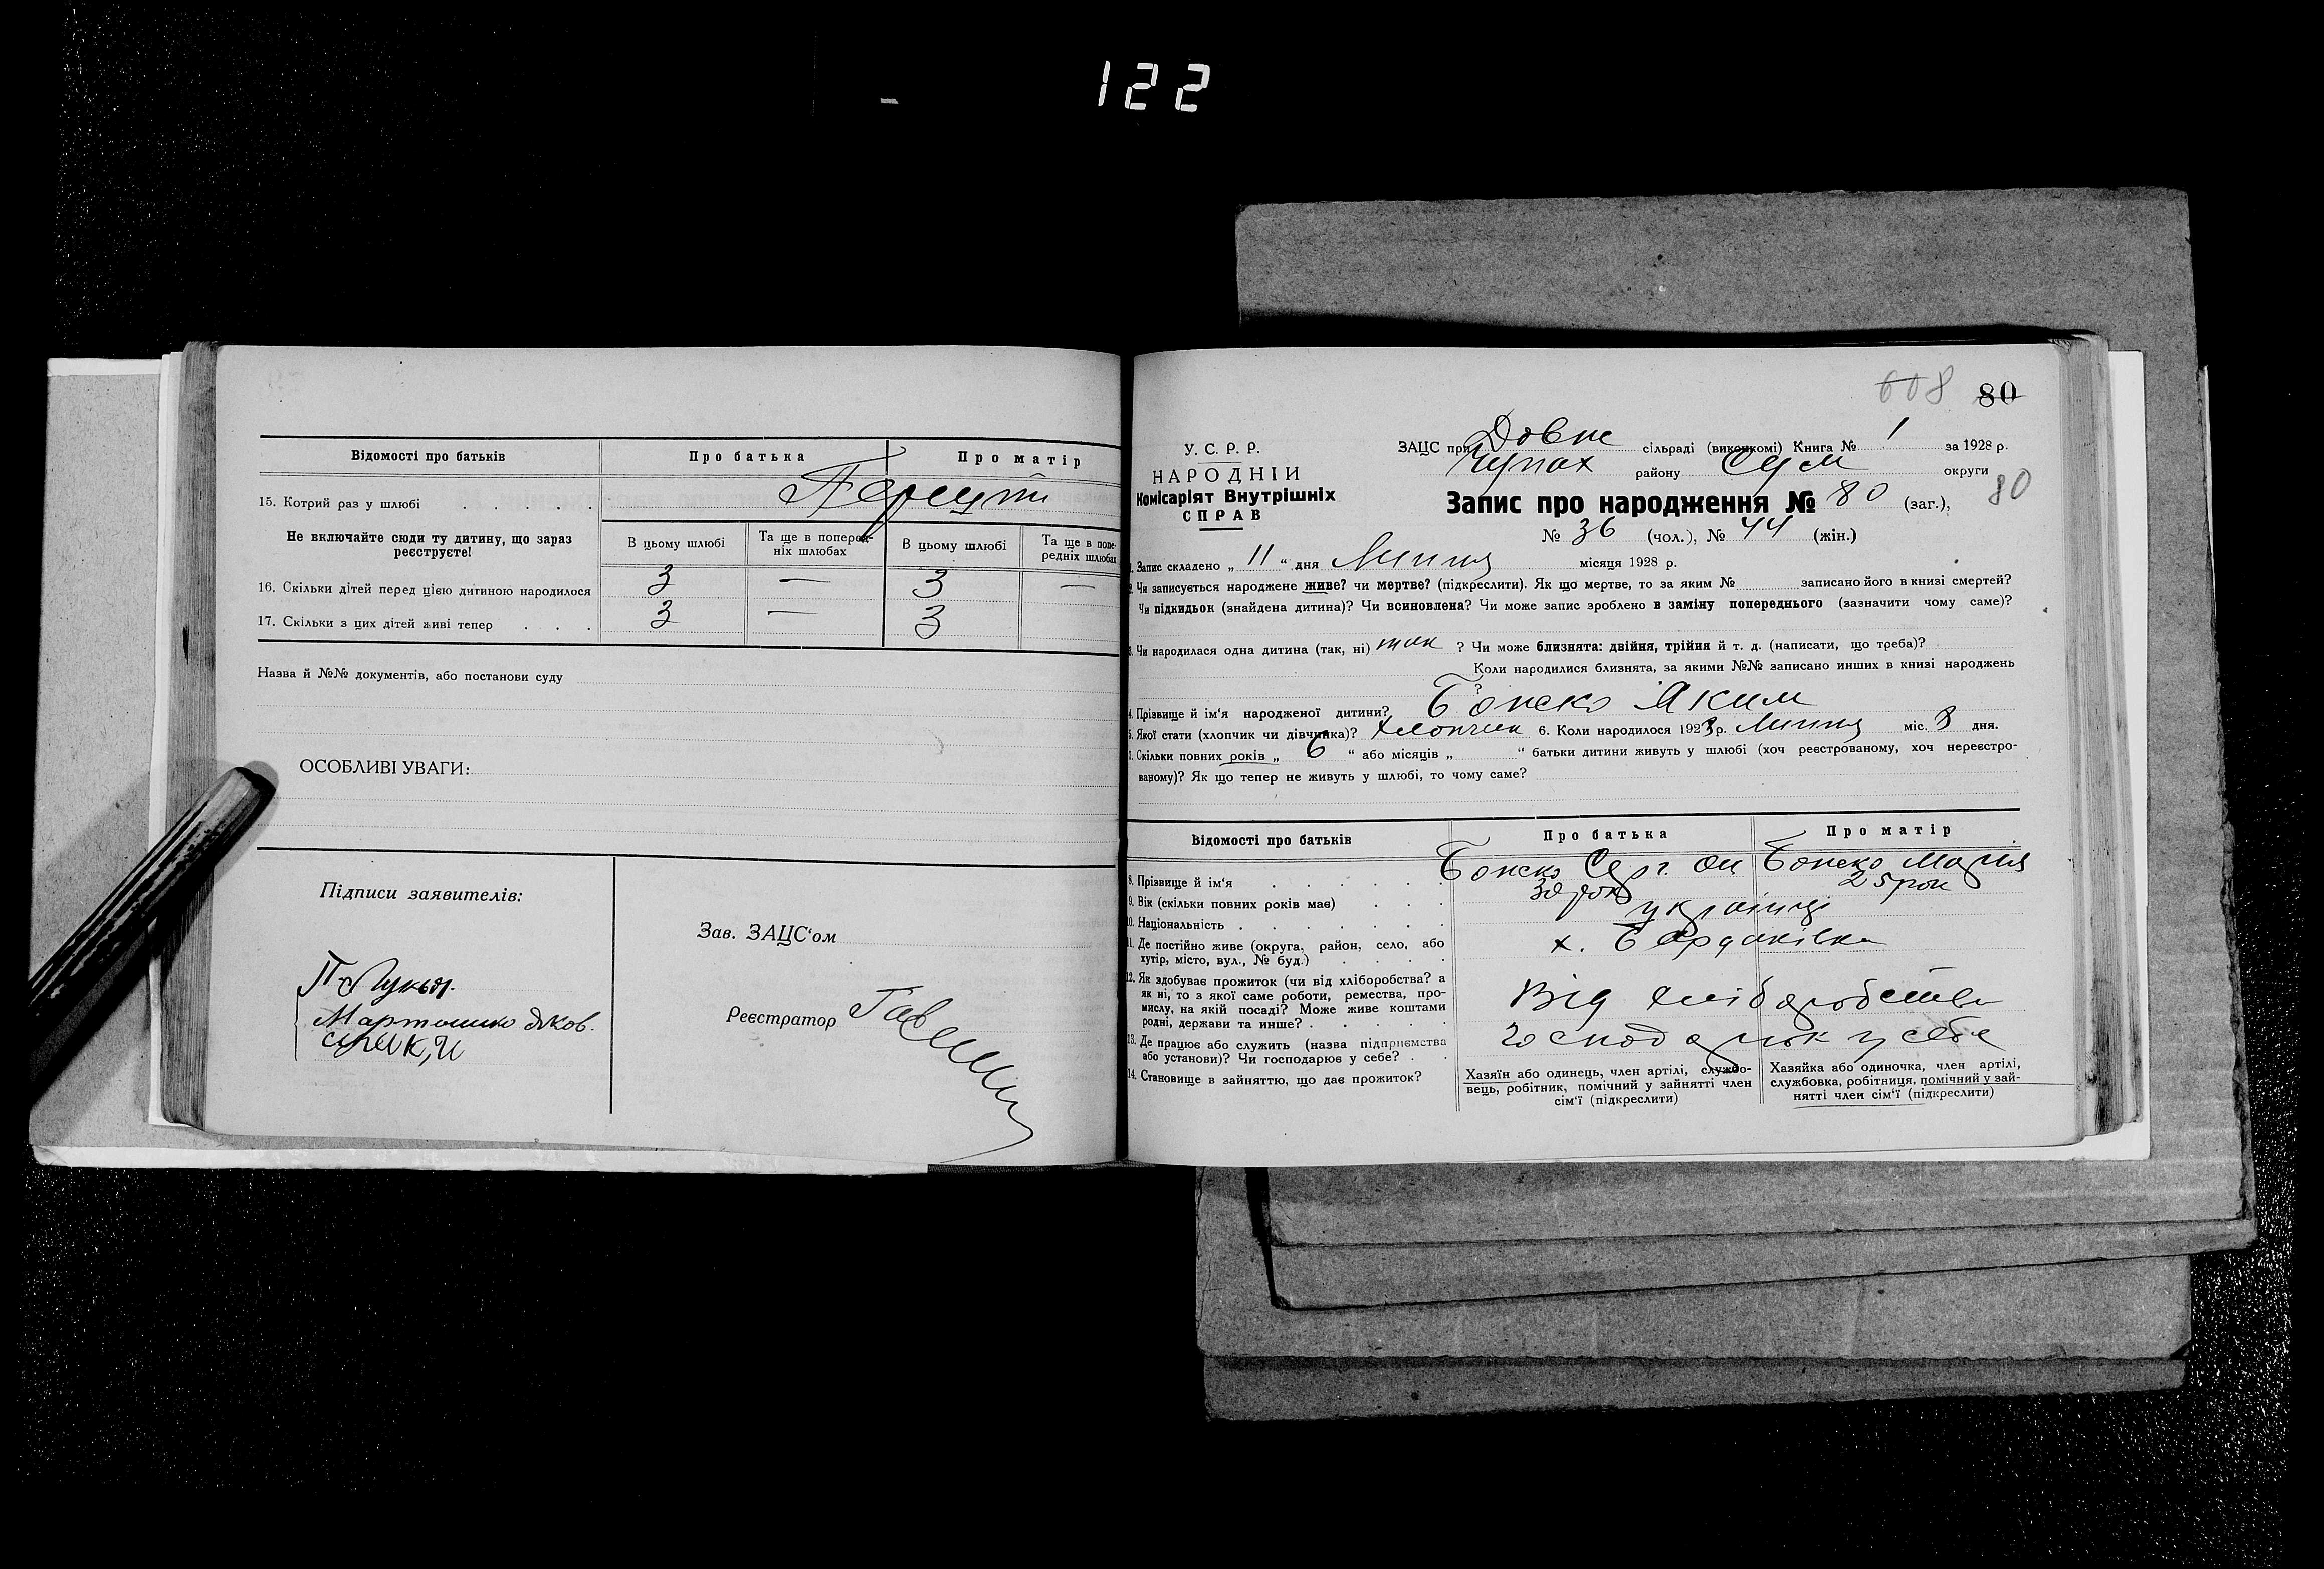 122
Відомості про батьків Про батька Про матір
15. Котрий раз у шлюбі
Не включайте сюди ту дитину, що зараз реєструєте!
В цьому шлюбі Та ще в поперед-ніх шлюбах В цьому шлюбі Та ще в попе-редніх шлюбах
16. Скільки дітей перед цією дитиною народилося 3 — 3 —
17. Скільки з цих дітей живі тепер 3 — 3
Назва й №№ документів, або постанови суду
ОСОБЛИВІ УВАГИ:
Підписи заявителів:
Зав. ЗАЦС'ом
Реєстратор
608 80
У. С. Р. Р.
НАРОДНІЙ
Комісаріят Внутрішніх
СПРАВ
ЗАЦС при Довже сільраді (виконкомі) Книга № 1 за 1928 р.
Чупах району Сум округи
80
Запис про народження № 80 (заг.),
№ 36 (чол.), № 44 (жін.)
1. Запис складено „ 11 “ дня Липня місяця 1928 р.
2. Чи записується народжене живе? чи мертве? (підкреслити). Як що мертве, то за яким № записано його в книзі смертей?
Чи підкидьок (знайдена дитина)? Чи всиновлена? Чи може запис зроблено в заміну попереднього (зазначити чому саме)?
3. Чи народилася одна дитина (так, ні) так ? Чи може близнята: двійня, трійня й т. д. (написати, що треба)?
Коли народилися близнята, за якими №№ записано инших в книзі народжень
?
4. Прізвище й ім'я народженої дитини? Аким
5. Якої стати (хлопчик чи дівчинка)? хлопчик 6. Коли народилося 1928 р. Липня міс. 8 дня.
7. Скільки повних років „ 6 “ або місяців „ “ батьки дитини живуть у шлюбі (хоч реєстрованому, хоч нереєстро-
ваному)? Як що тепер не живуть у шлюбі, то чому саме?
Відомості про батьків Про батька Про матір
8. Прізвище й ім'я Марія
9. Вік (скільки повних років має) 30 рок 25 рок
10. Національність українці
11. Де постійно живе (округа, район, село, або
хутір, місто, вул., № буд.) х. Бардаківка
12. Як здобуває прожиток (чи від хліборобства? а
як ні, то з якої саме роботи, ремества, про-
мислу, на якій посаді? Може живе коштами
родні, держави та инше? Від хліборобства
13. Де працює або служить (назва підприємства
або установи)? Чи господарює у себе? у себе
14. Становище в зайняттю, що дає прожиток?
Хазяїн або одинець, член артілі, службо-
вець, робітник, помічний у зайнятті член
сім'ї (підкреслити)
Хазяйка або одиночка, член артілі,
службовка, робітниця, помічний у зай-
нятті член сім'ї (підкреслити)